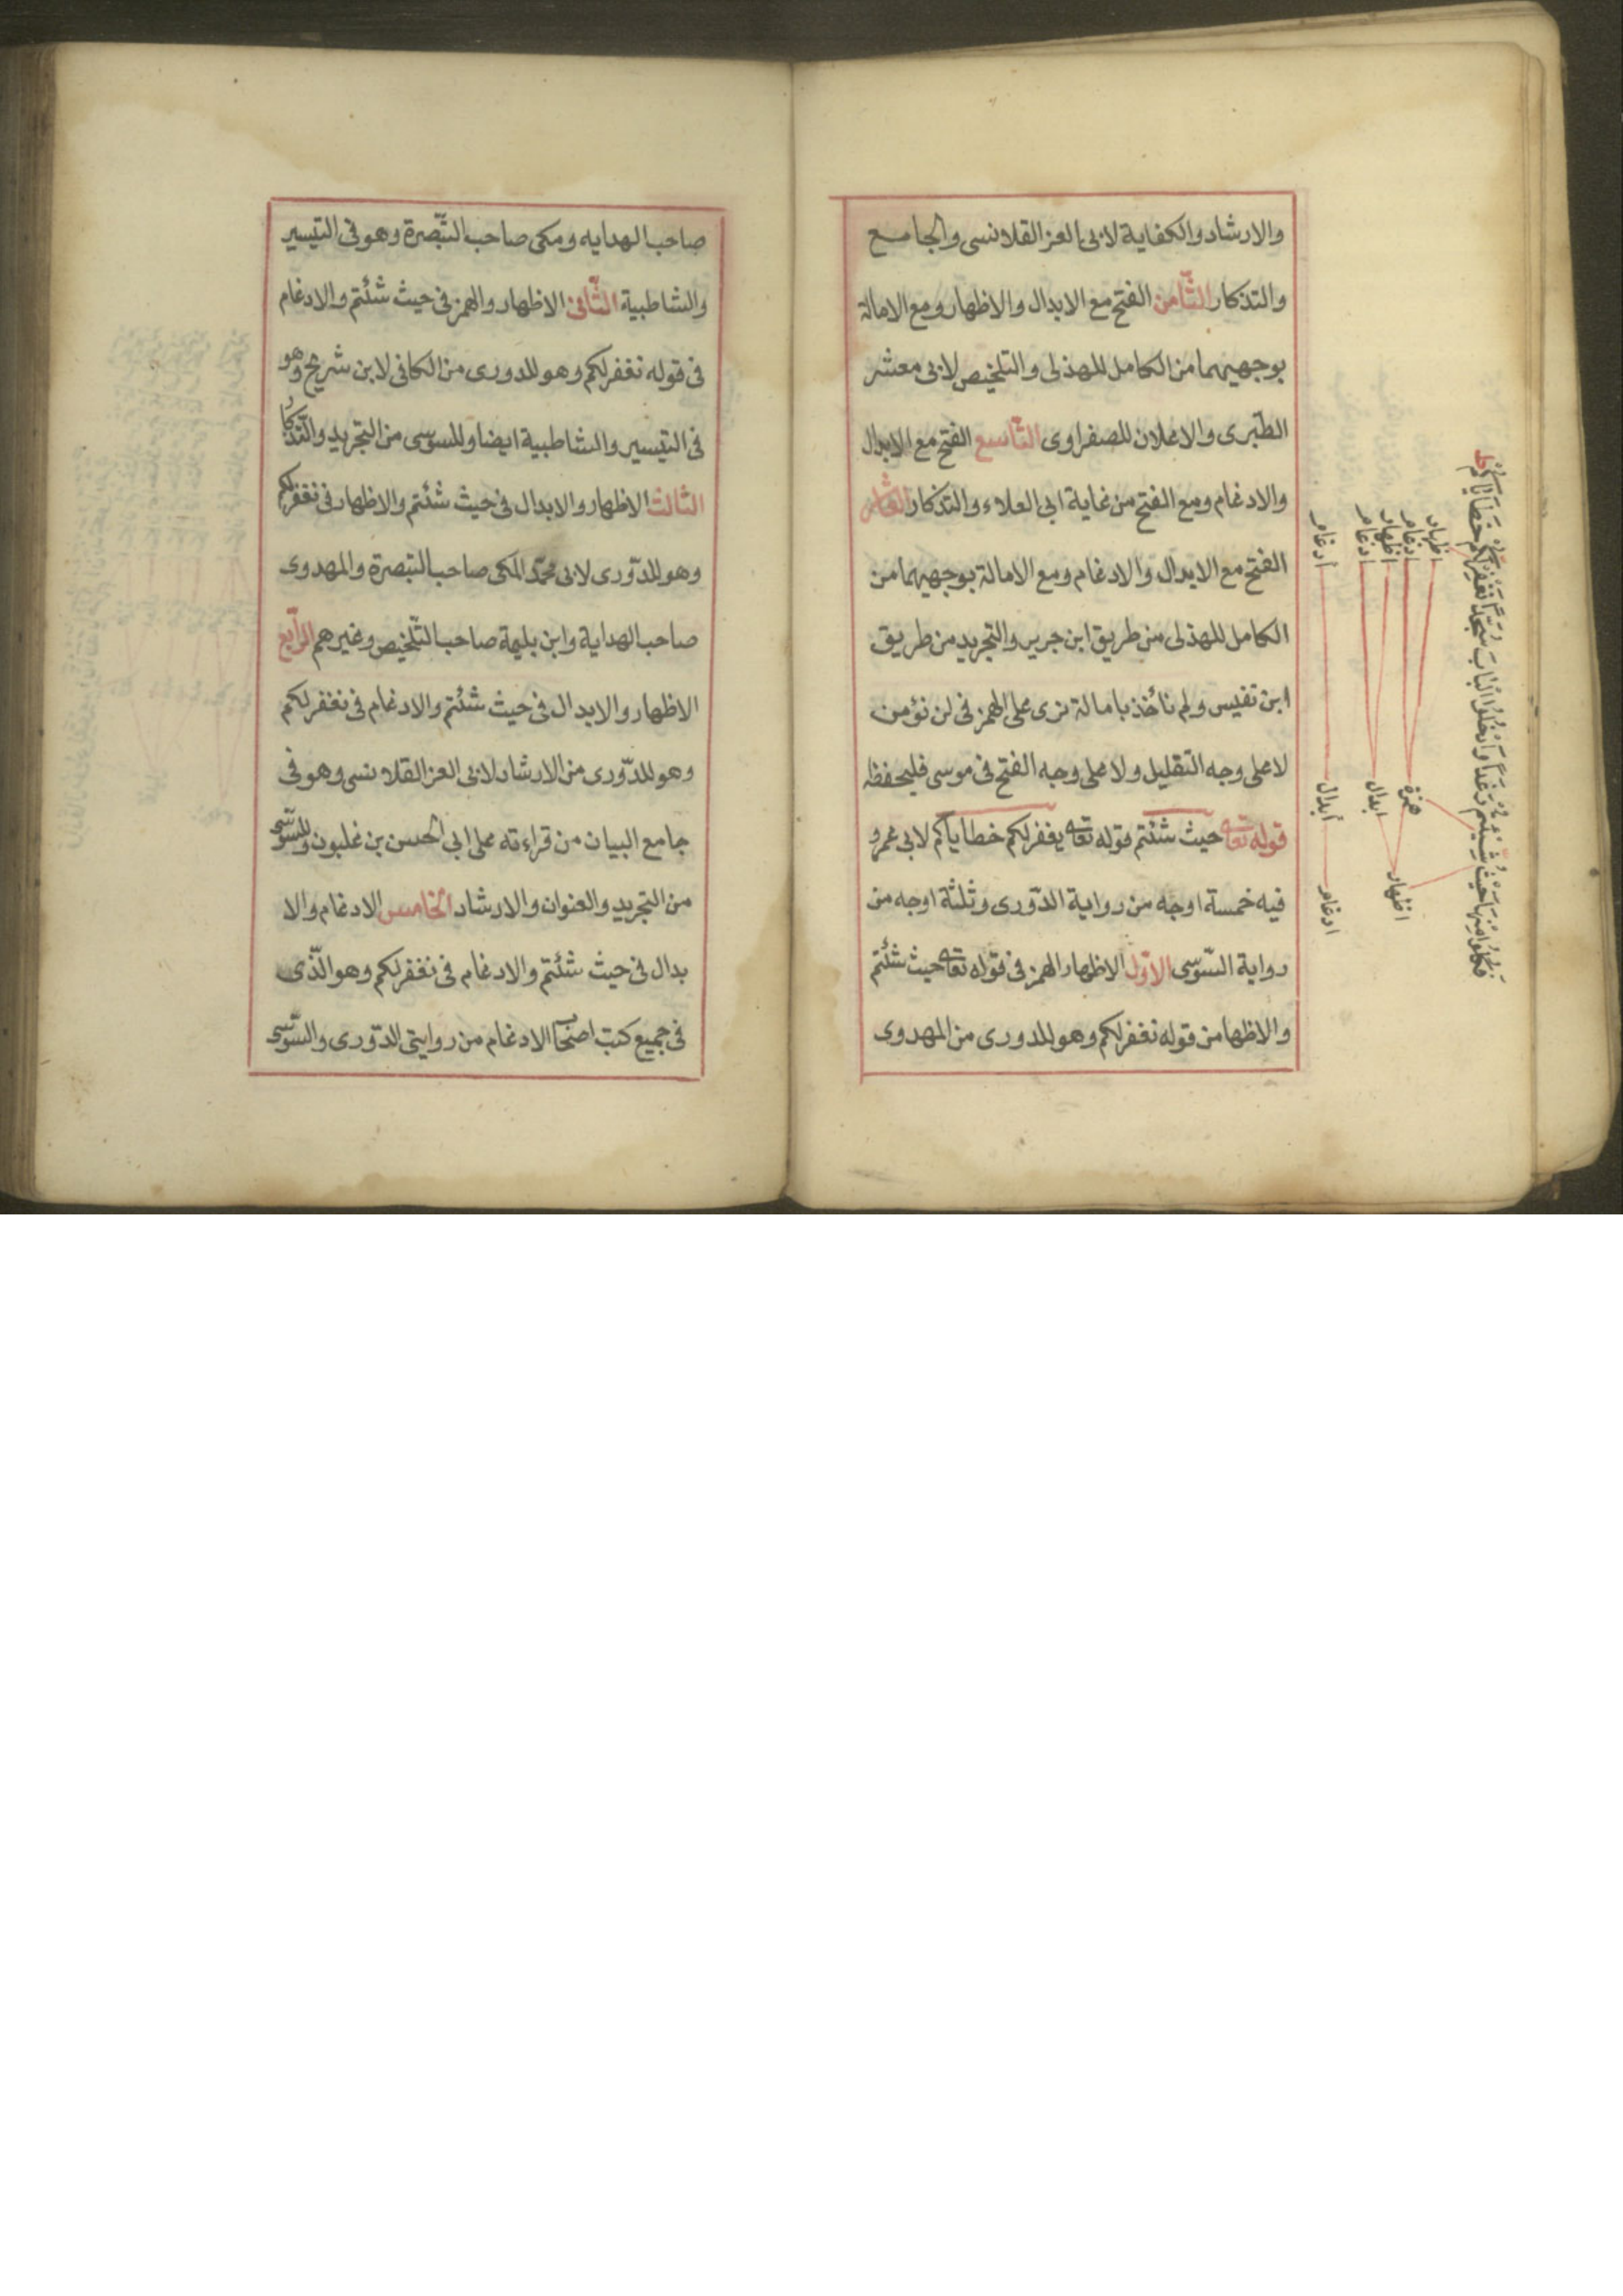 والارشاد والكفاية لابى العز القلانسى والجامع
والتذكار الثّامن الفتح مع الابدال والاظهار ومع الامالة
بوجهيهما من الكامل للهذلى والتلخيص لابى معشر
الطّبرى والاعلان للصفراوى التّاسع الفتح مع الابدال
والادغام ومع الفتح من غاية ابى العلاء والتذكار العاشر
الفتح مع الابدال والادغام ومع الامالة بوجهيهما من
الكامل للهذلى من طريق ابن جرير والتجريد من طريق
ابن نفيس ولم نأخذ بامالة نرى على الهمز فى لن نؤمن
لا على وجه التقليل ولا على وجه الفتح فى موسى فليحفظ
قوله تعا حيث شئتم قوله تعا يغفر لكم خطاياكم لابى عمرو
فيه خمسة اوجه من رواية الدّورى وثلثة اوجه من
رواية السّوسى الاوّل الاظهار الهمز فى قوله تعا حيث شئتم
والاظها من قوله نغفر لكم وهو للدورى من المهدوى
فكلوا منها حيث شئتم رغدا وادخلوا الباب سجدا نغفر لكم خطاياكم
اظهار
ادغام
اظهار
ادغام
ادغام
همزة
ابدال
ابدال
اظهار
ادغام
صاحب الهدايه ومكى صاحب التّبصرة وهو فى التيسير
والشاطبية الثّانى الاظهار والهمز فى حيث شئتم والادغام
فى قوله نغفر لكم وهو للدورى من الكافى لابن شريح وهو
فى التيسير والشاطبية ايضا وللسوسى من التجريد والتّذكار
الثالث الاظهار والابدال فى حيث شئتم والاظهار فى نغفر لكم
وهو للدّورى لابى محمّد المكى صاحب التبصرة والمهدوى
صاحب الهداية وابن بليمة صاحب التّلخيص وغيرهم الرّابع
الاظهار والابدال فى حيث شئتم والادغام فى نغفر لكم
وهو للدّورى من الارشاد لابى العز القلانسى وهو فى
جامع البيان من قراءته على ابى الحسن بن غلبون وللسّوسى
من التجريد والعنوان والارشاد الخامس الادغام والا
بدال فى حيث شئتم والادغام فى نغفر لكم وهو الّذى
فى جميع كتب اصحاب الادغام من روايتى الدّورى والسّوسى